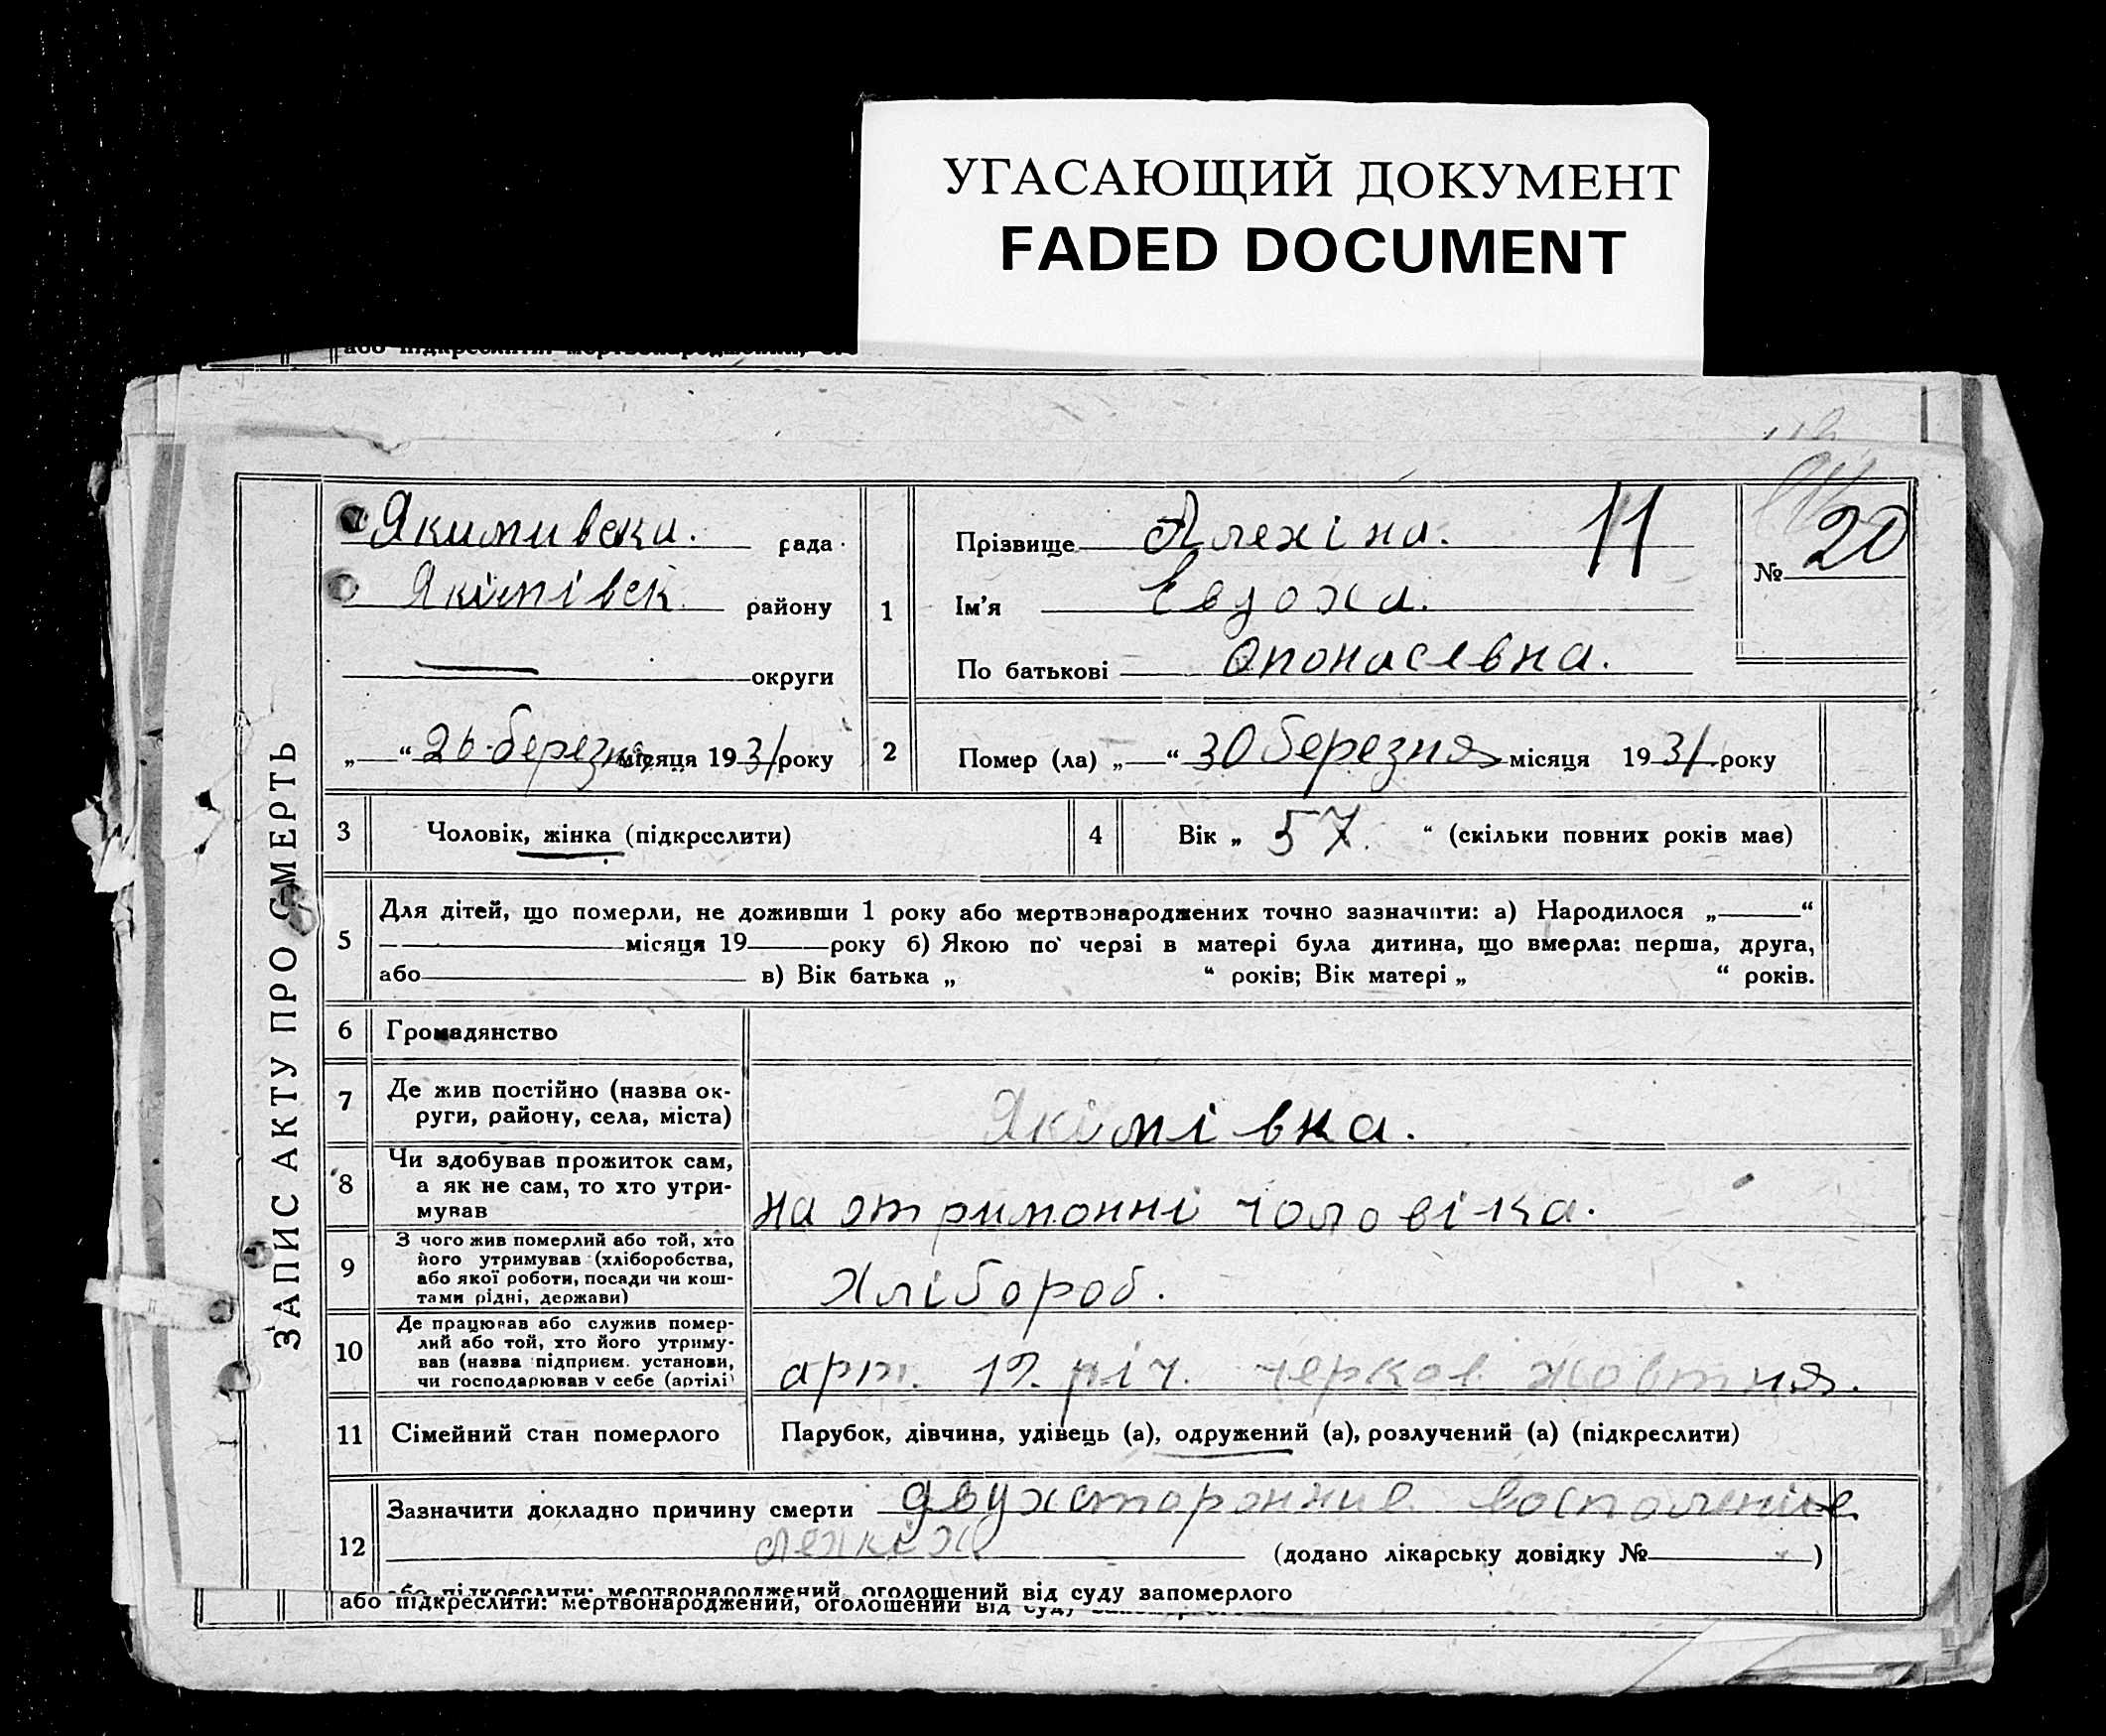 УГАСАЮЩИЙ ДОКУМЕНТ
FADED DOCUMENT
ЗАПИС АКТУ ПРО СМЕРТЬ
Якимивска. рада
Якімівск. району
округи
„ “ 26 березня місяця 1931 року
1
Прізвище Алехіна. 11
Ім’я Евдоха.
По батькові Опонасевна.
№ 20
2
Помер (ла) „ “ 30 березня місяця 1931 року
3 Чоловік, жінка (підкреслити)
4 Вік „ 57. “ (скільки повних років має)
5
Для дітей, що померли, не доживши 1 року або мертвонароджених точно зазначити: а) Народилося „ “
місяця 19 року б) Якою по черзі в матері була дитина, що вмерла: перша, друга,
або в) Вік батька „ “ років; Вік матері „ “ років.
6 Громадянство
7 Де жив постійно (назва ок-
руги, району, села, міста)
Якімівка.
8 Чи здобував прожиток сам,
а як не сам, то хто утри-
мував
на отримонні чоловіка.
9 З чого жив померлий або той, хто
його утримував (хліборобства,
або якої роботи, посади чи кош-
тами рідні, держави)
Хлібороб.
10 Де працював або служив помер-
лий або той, хто його утриму-
вав (назва підприєм. установи,
чи господарював у себе (артілі)
арт. річ. жовтня.
11 Сімейний стан померлого
Парубок, дівчина, удівець (а), одружений (а), розлучений (а) (підкреслити)
12
Зазначити докладно причину смерти двухсторонние восполение
лехкіх
(додано лікарську довідку № )
або підкреслити: мертвонароджений, оголошений від суду запомерлого
або підкреслити: мертвонароджений, оголошений від суду